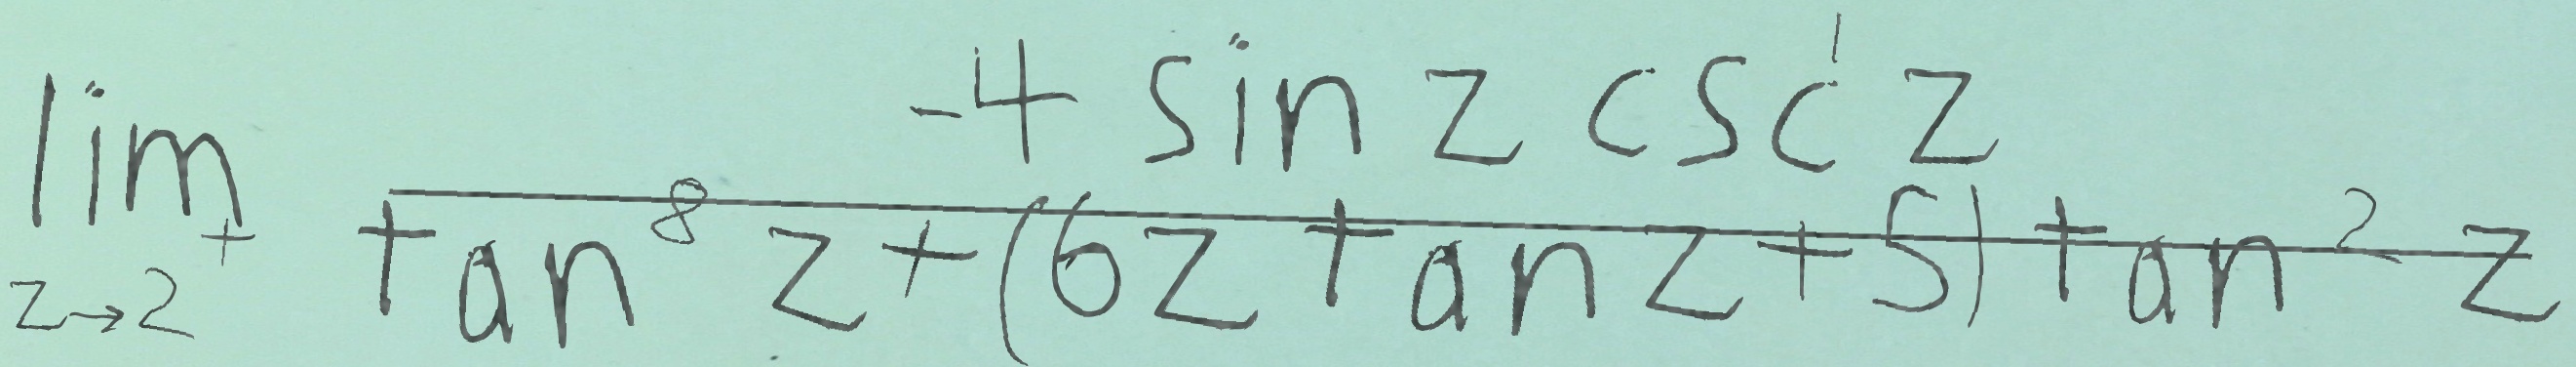 \lim_{z \to 2^+} \frac{-4 \sin z \csc^1 z}{\tan^8 z + (6z \tan z + 5) \tan^2 z}